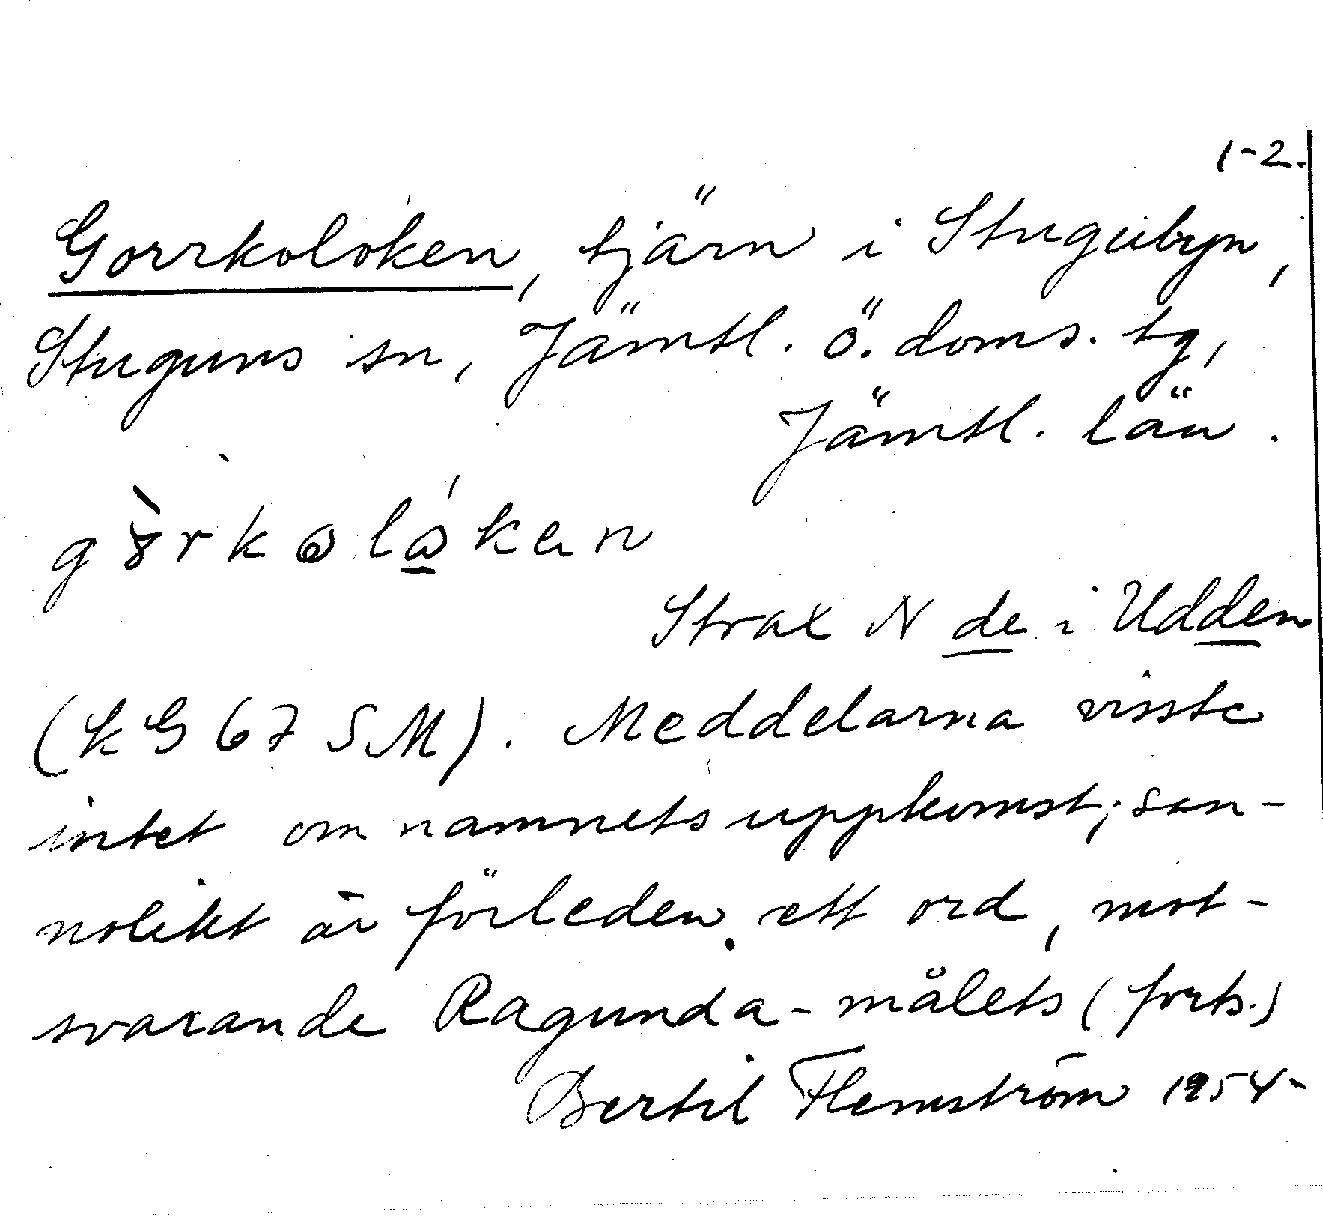 1-2.
Gorrkoloken, tjärn i Stugubyn,
Stuguns sn, Jämtl. ö. doms. tg,
Jämtl. län.
Strax N de i Udden
(kG 67 SM). Meddelarna visste
intet om namnets uppkomst; san-
nolikt är förleden ett ord, mot-
svarande Ragunda-målets (forts.)
Bertil Flemström 1954